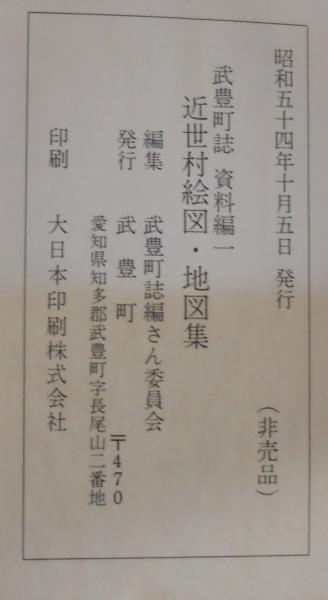 昭和五十四年十月五日 発行
（非売品）
武豊町誌 資料編一
近世村絵図・地図集
編集 武豊町誌編さん委員会
発行 武豊町
〒470
愛知県知多郡武豊町字長尾山二番地
印刷 大日本印刷株式会社